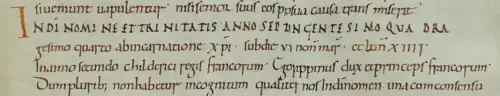 uapulentur nisi senior suus posita causa transmiserit
IN DI NOMINE ET TRINITATIS ANNO SEPTINGENTESIMO QUADRA
gesimo quarto ab incarnatione xpi sub die vi non mar et lun xiiii
In anno secundo childerici regis francorum Ego pippinus dux et princeps francorum
Dum plurib; non habetur incognitum qualiter nos In di nomen una cum consensu